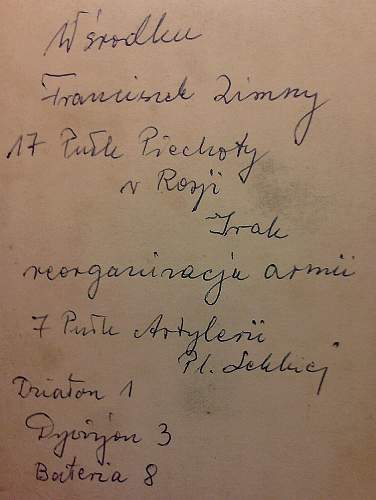 W środku
Franciszek Zimny
17 Pułk Piechoty
w Rosji
Irak
reorganizacja armii
7 Pułk Artylerii
Pl. Lekkiej
Działon 1
Dywizjon 3
Bateria 8